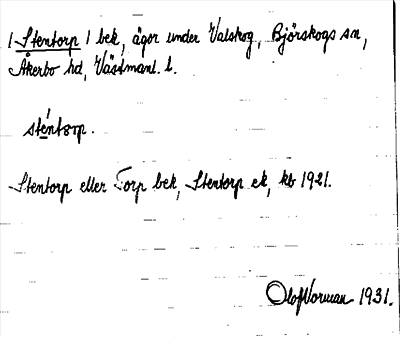 1 Stentorp 1 bek, ägor under Valskog, Björskogs sn,
Åkerbo hd, Västmanl. l.
sténtorp.
Stentorp eller Torp bek, Stentorp ek, kb 1921.
Olof Norman 1931.